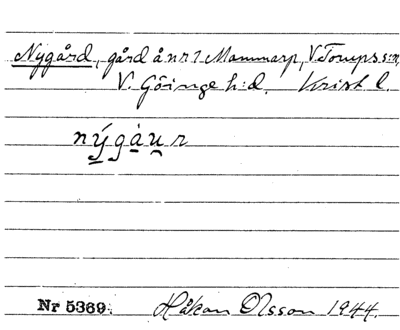 Nygård, gård å nr 7 Mammarp, V. Torups s:n,
V. Göinge h:d. Krist l.
nýgàu̯r
Nr 5369. Håkan Olsson 1944.